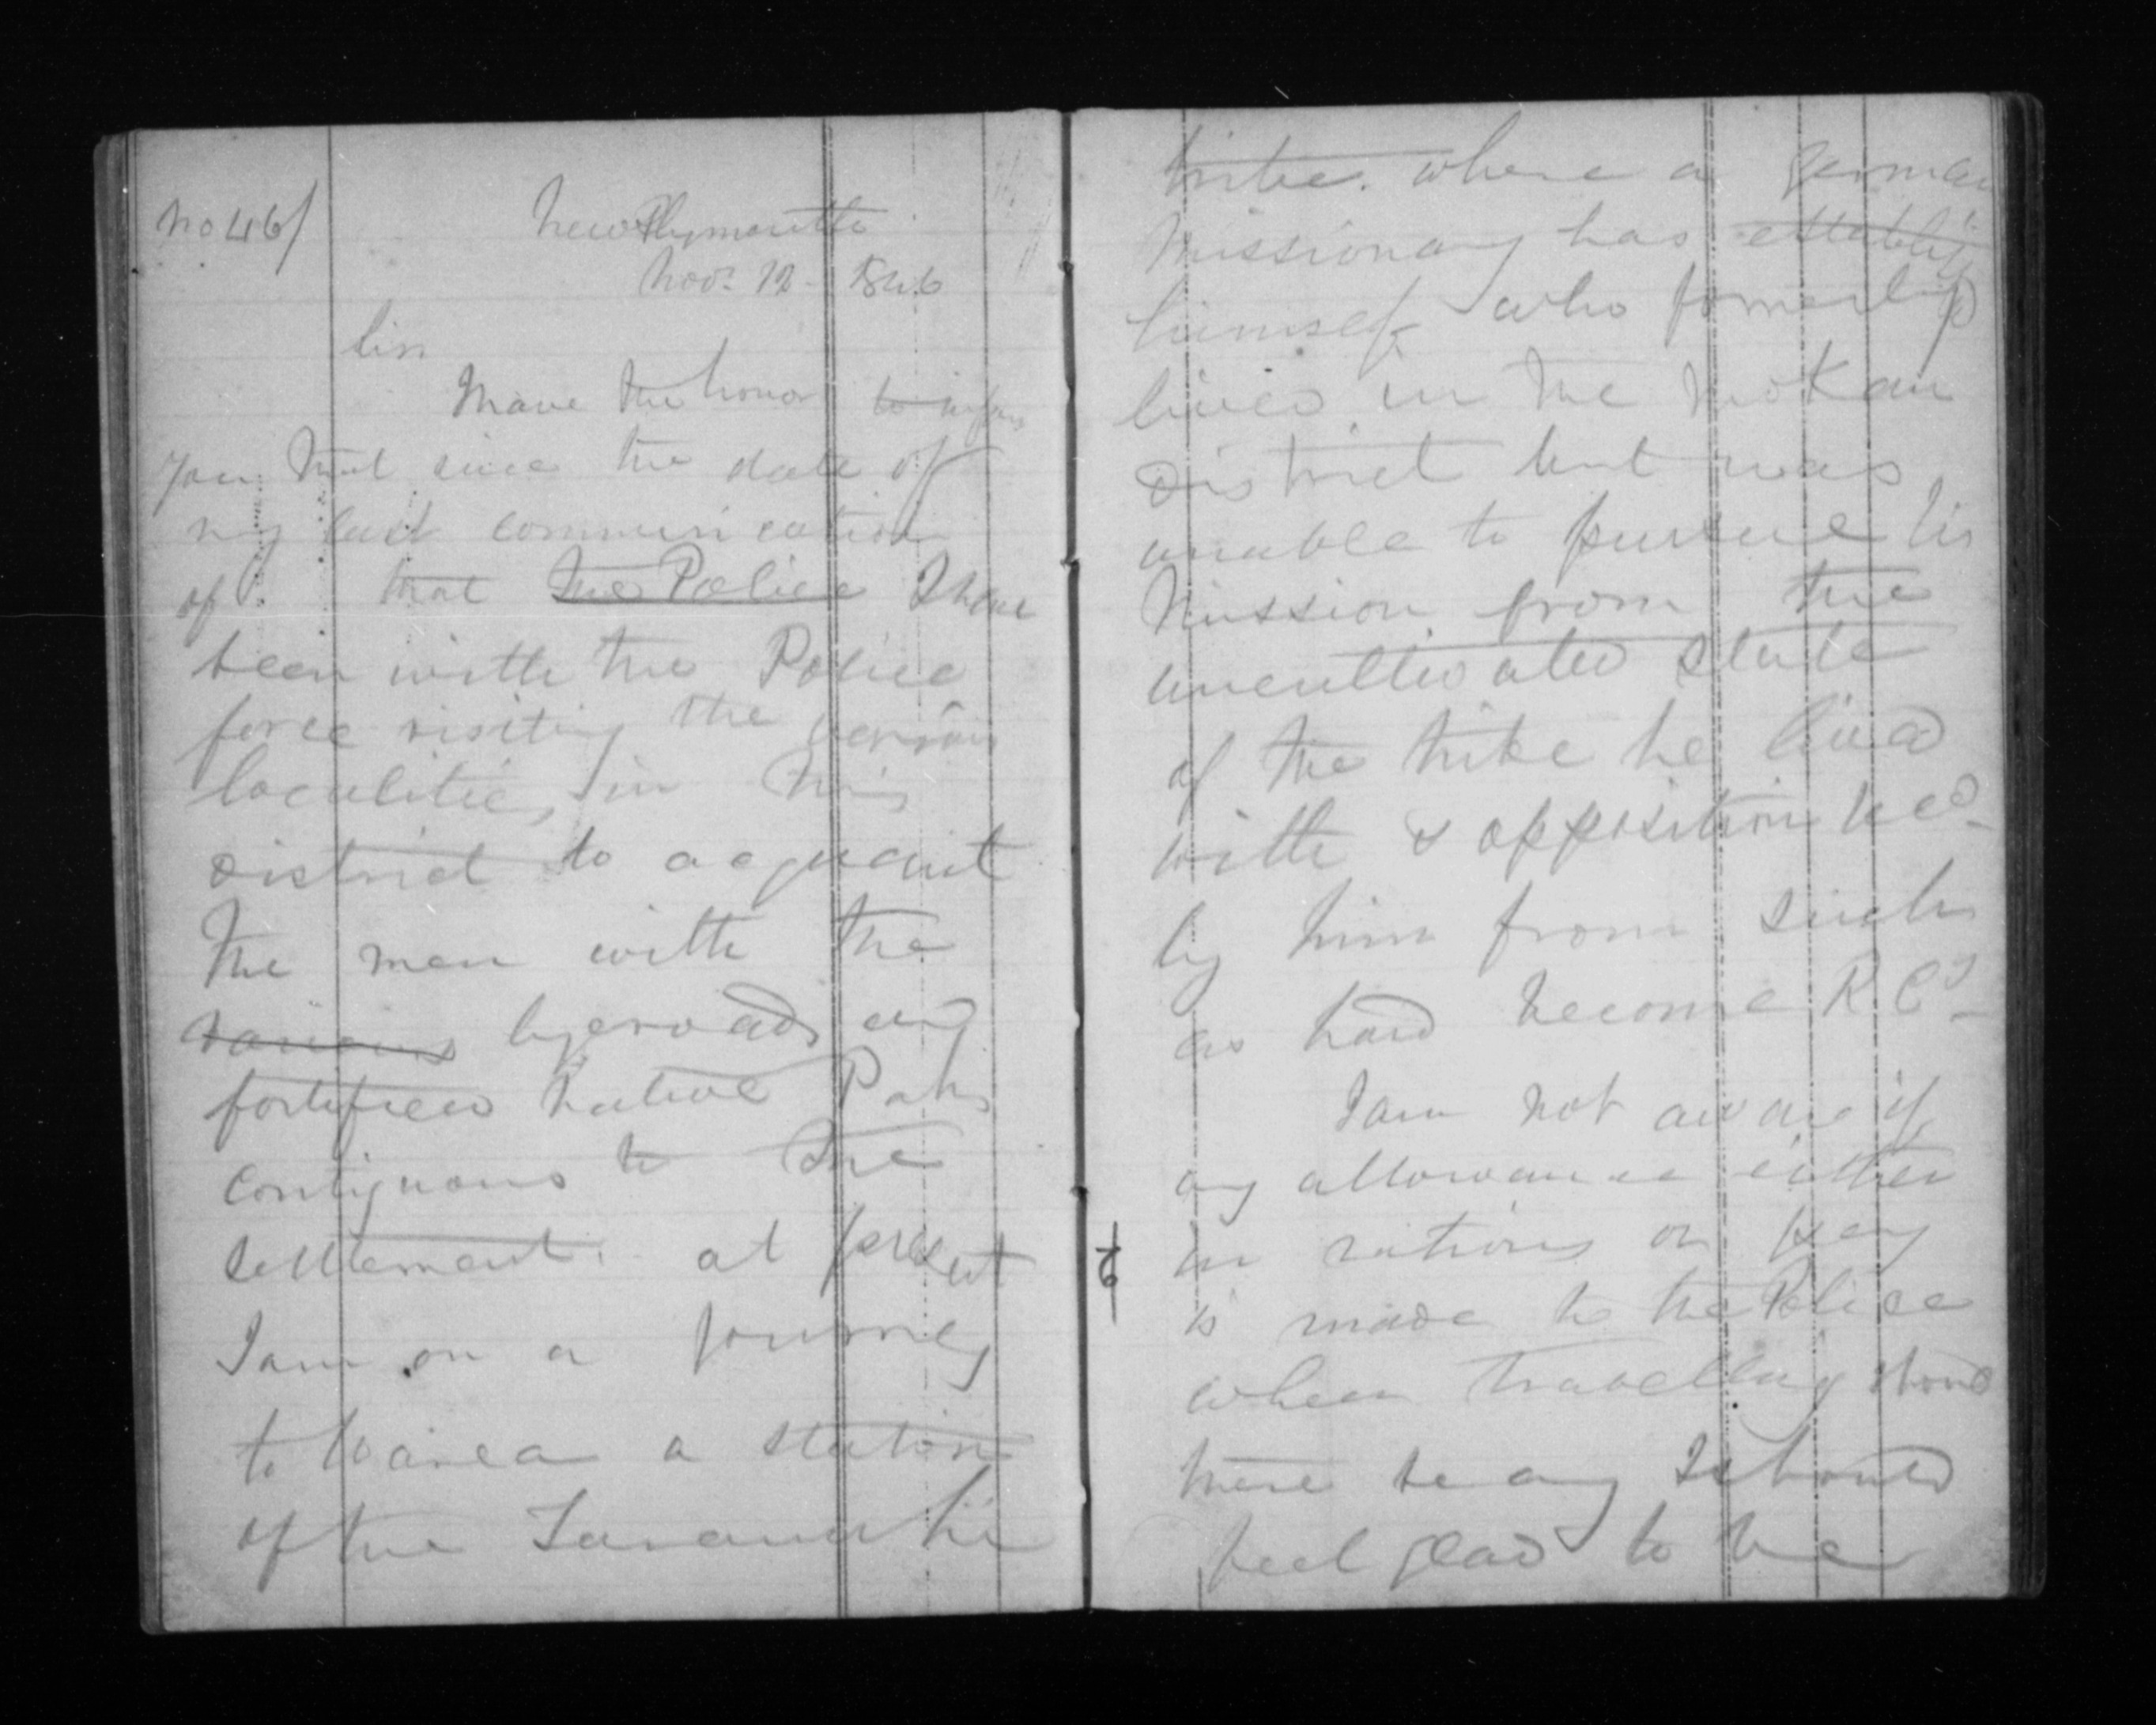 no 46/
New Plymouth
Nov: 12 - 1846
Sir
I have the honor to inform
you that since the date of
my last communication
of that the Police I have
been with the Police
force visiting the various
localities, in this
district to acquaint
the men with the
various byeroads and
fortified Native Pahs
contiguous to the
settlement. at present
I am on a journey
to Warea a station
of the Taranaki
tribe. where a German
Missionary has establish
himself who formerly
lived in the Mokau
District but was
unable to pursue his
Mission from the
uncultivated state
of the tribe he lived
with & opposition recd
by him from such
as had become R Cs
I am not aware if
any allowance either
in rations or pay
is made to the Police
when travelling should
there be any I should
feel glad to be